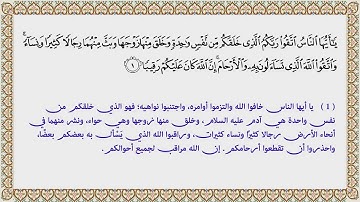 يَٰٓأَيُّهَا ٱلنَّاسُ ٱتَّقُوا۟ رَبَّكُمُ ٱلَّذِى خَلَقَكُم مِّن نَّفْسٍ وَٰحِدَةٍ وَخَلَقَ مِنْهَا زَوْجَهَا وَبَثَّ مِنْهُمَا رِجَالًا كَثِيرًا وَنِسَآءً ۚ
وَٱتَّقُوا۟ ٱللَّهَ ٱلَّذِى تَسَآءَلُونَ بِهِۦ وَٱلْأَرْحَامَ ۚ إِنَّ ٱللَّهَ كَانَ عَلَيْكُمْ رَقِيبًا ١
(١) يا أيها الناس خافوا الله والتزموا أوامره، واجتنبوا نواهيه؛ فهو الذي خلقكم من
نفس واحدة هي آدم عليه السلام، وخلق منها زوجها وهي حواء، ونشر منهما في
أنحاء الأرض رجالا كثيرًا ونساء كثيرات، وراقبوا الله الذي يَسْأل به بعضكم بعضًا،
واحذروا أن تقطعوا أرحامكم. إن الله مراقب لجميع أحوالكم.